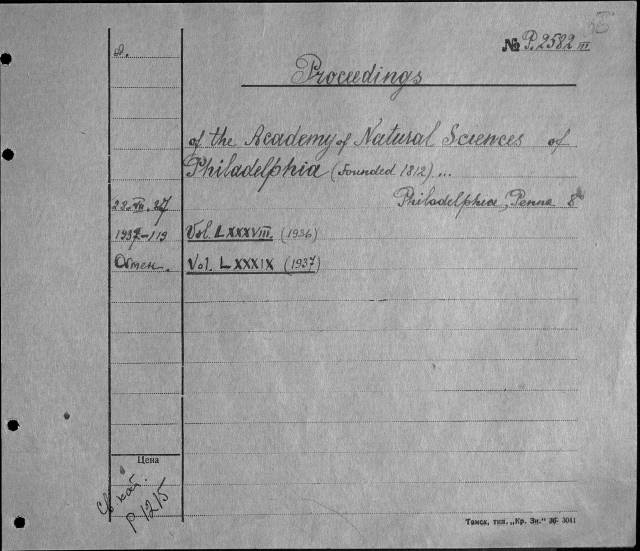 № P. 2582 III
Proceedings
of the Academy of Natural Sciences of
Philadelphia (Founded 1812)...
Philadelphia, Penna 8°
1937-119 Vol. LXXXVIII. (1936)
Обмен. Vol. LXXXIX (1937)
Цена
Св кат.
P 1215
Томск, тип. „Кр. Зн." 36- 3041